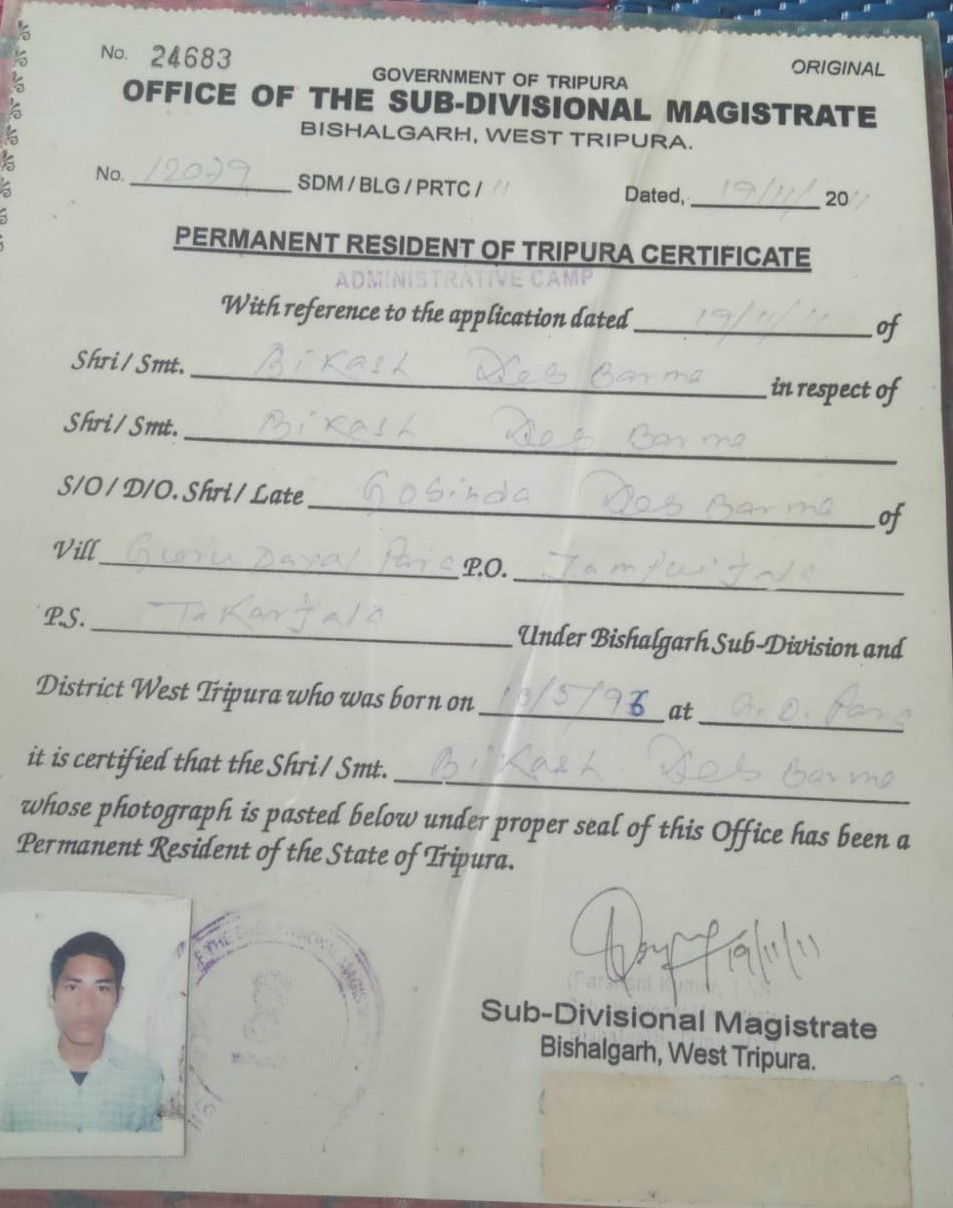 No. 24683
ORIGINAL
GOVERNMENT OF TRIPURA
OFFICE OF THE SUB-DIVISIONAL MAGISTRATE
BISHALGARH, WEST TRIPURA.
No. 12029 SDM / BLG / PRTC / 11 Dated, 19/11/ 2011
PERMANENT RESIDENT OF TRIPURA CERTIFICATE
ADMINISTRATIVE CAMP
With reference to the application dated 19/11/11 of
Shri/ Smt. Bikash Deb Barma in respect of
Shri/ Smt. Bikash Deb Barma
S/O / D/O. Shri/ Late Gobinda Deb Barma of
Vill Guru Dayal Para P.O. Jampuijala
P.S. Takarjala Under Bishalgarh Sub-Division and
District West Tripura who was born on /5/96 at G.D. Para
it is certified that the Shri/ Smt. Bikash Deb Barma
whose photograph is pasted below under proper seal of this Office has been a
Permanent Resident of the State of Tripura.
THE SUB-DIVISIONAL MAGIST
19/11/11
Kumar, IAS)
Sub-Divisional Magistrate
Bishalgarh, West Tripura.